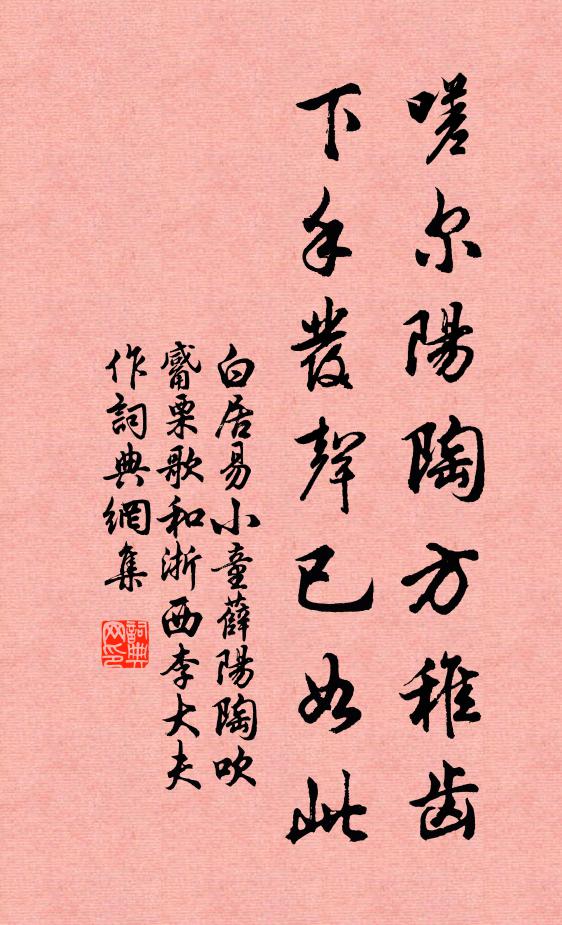 嗟尔陽陶方稚齿
下手發聲已如此
白居易小童薛陽陶吹
觱栗歌和浙西李大夫
作詞典網集
詞典
网印